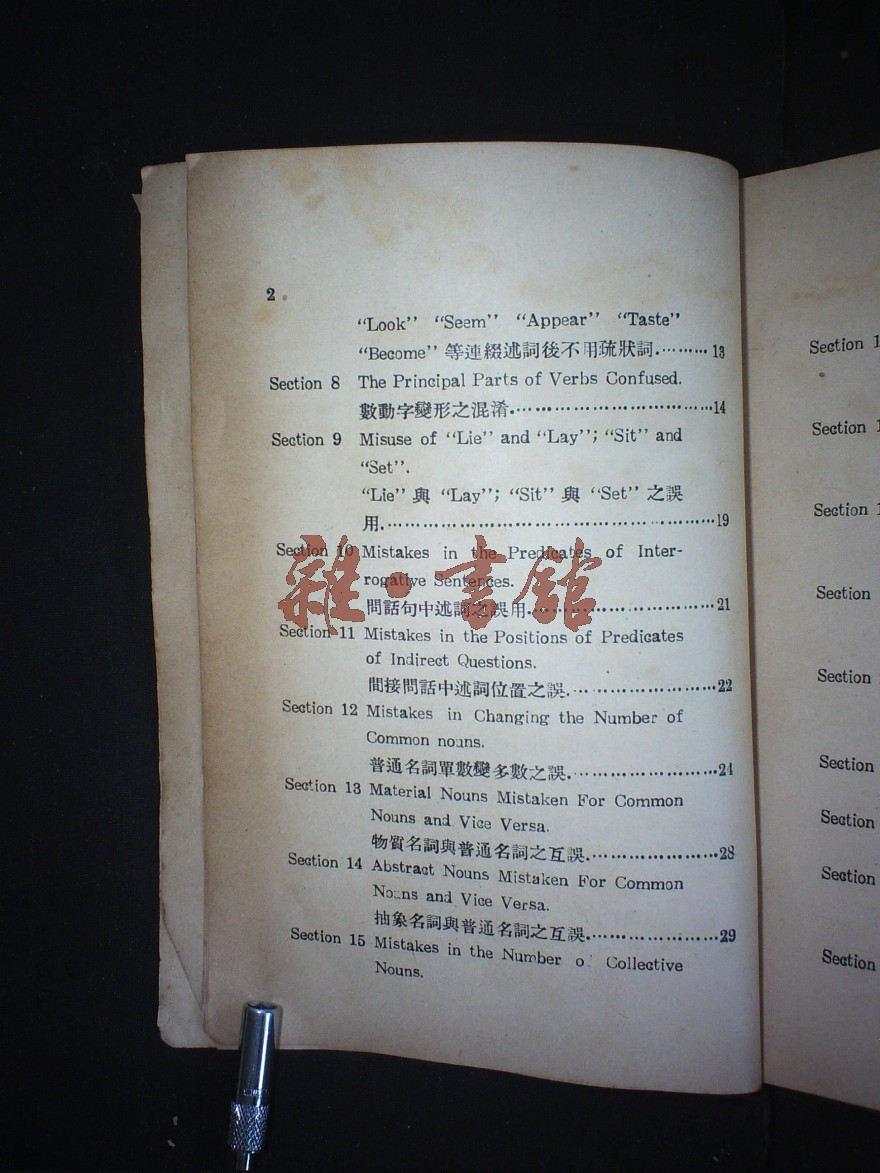 2
“Look” “Seem” “Appear” “Taste”
“Become” 等連綴述詞後不用疏狀詞.………13
Section 8 The Principal Parts of Verbs Confused.
數動字變形之混淆.……………………………14
Section 9 Misuse of “Lie” and “Lay”; “Sit” and
“Set”.
“Lie” 與 “Lay”; “Sit” 與 “Set” 之誤
用.………………………………………………19
Section 10 Mistakes in the Predicates of Inter-
rogative Sentences.
問話句中述詞之誤用.…………………………21
Section 11 Mistakes in the Positions of Predicates
of Indirect Questions.
間接問話中述詞位置之誤.……………………22
Section 12 Mistakes in Changing the Number of
Common nouns.
普通名詞單數變多數之誤.……………………24
Section 13 Material Nouns Mistaken For Common
Nouns and Vice Versa.
物質名詞與普通名詞之互誤.…………………28
Section 14 Abstract Nouns Mistaken For Common
Nouns and Vice Versa.
抽象名詞與普通名詞之互誤.…………………29
Section 15 Mistakes in the Number o Collective
Nouns.
雜·書館
Section 1
Section 1
Section 1
Section
Section
Section
Section
Section
Section